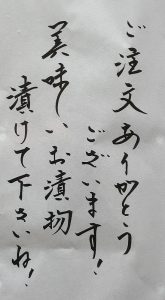 ご注文ありがとう
ございます!
美味しいお漬物
漬けて下さいね!